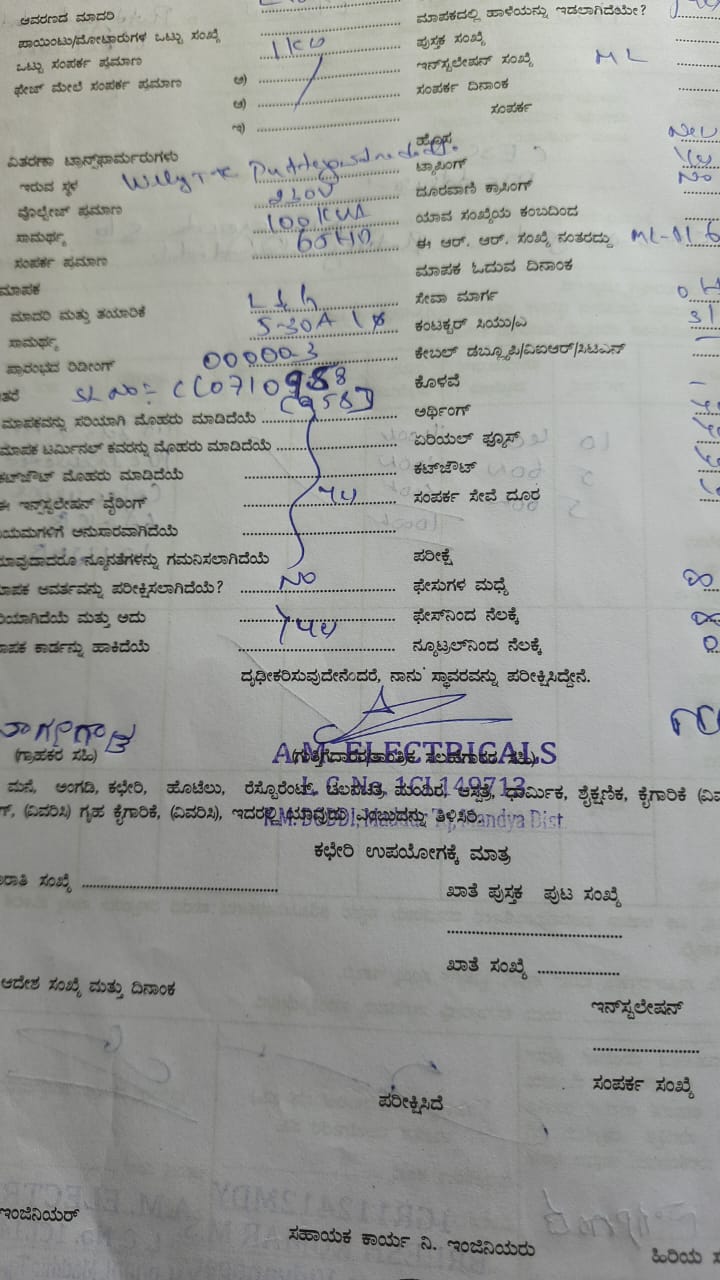 ಆವರಣದ ಮಾದರಿ
ಮಾಪಕದಲ್ಲಿ ಹಾಳೆಯನ್ನು ಇಡಲಾಗಿದೆಯೇ?
ಪಾಯಿಂಟು/ಮೋಟಾರುಗಳ ಒಟ್ಟು ಸಂಖ್ಯೆ
ಪುಸ್ತಕ ಸಂಖ್ಯೆ
ಒಟ್ಟು ಸಂಪರ್ಕ ಪ್ರಮಾಣ 1KW
ಇನ್‌ಸ್ಟಲೇಷನ್ ಸಂಖ್ಯೆ ML
ಫೇಜ್ ಮೇಲೆ ಸಂಪರ್ಕ ಪ್ರಮಾಣ ಅ)
ಸಂಪರ್ಕ ದಿನಾಂಕ
ಆ)
ಸಂಪರ್ಕ
ಇ)
ಹೊಸ New
ವಿತರಣಾ ಟ್ರಾನ್ಸ್‌ಫಾರ್ಮರುಗಳು
ಟ್ಯಾಪಿಂಗ್
ಇರುವ ಸ್ಥಳ
ದೂರವಾಣಿ ಕ್ರಾಸಿಂಗ್ No
ವೋಲ್ಟೇಜ್ ಪ್ರಮಾಣ 230V
ಯಾವ ಸಂಖ್ಯೆಯ ಕಂಬದಿಂದ
ಸಾಮರ್ಥ್ಯ 100KVA
ಈ ಆರ್. ಆರ್. ಸಂಖ್ಯೆ ನಂತರದ್ದು
ಸಂಪರ್ಕ ಪ್ರಮಾಣ 65HP
ಮಾಪಕ ಓದುವ ದಿನಾಂಕ
ಮಾಪಕ
ಸೇವಾ ಮಾರ್ಗ OH
ಮಾದರಿ ಮತ್ತು ತಯಾರಿಕೆ L&G
ಕಂಟಕ್ಟರ್ ಸಿಯು/ಎ
ಸಾಮರ್ಥ್ಯ 5-30A 1Ø
ಕೇಬಲ್ ಡಬ್ಲ್ಯೂಪಿ/ವಿಐಆರ್/ಸಿಟಿಎನ್
ಪ್ರಾರಂಭದ ರಿಡಿಂಗ್ 000003
ಕೊಳವೆ
ತರೆ SL No:- CC0710958
(958)
ಮಾಪಕವನ್ನು ಸರಿಯಾಗಿ ಮೊಹರು ಮಾಡಿದೆಯೆ
ಅರ್ಥಿಂಗ್
ಮಾಪಕ ಟರ್ಮಿನಲ್ ಕವರನ್ನು ಮೊಹರು ಮಾಡಿದೆಯೆ
ಏರಿಯಲ್ ಫ್ಯೂಸ್
ಕಟ್‌ಔಟ್ ಮೊಹರು ಮಾಡಿದೆಯೆ
ಕಟ್‌ಔಟ್
ಈ ಇನ್‌ಸ್ಟಲೇಷನ್ ವೈರಿಂಗ್ Yes
ಸಂಪರ್ಕ ಸೇವೆ ದೂರ
ಯಮಗಳಿಗೆ ಅನುಸಾರವಾಗಿದೆಯೆ
ಯಾವುದಾದರೂ ನ್ಯೂನತೆಗಳನ್ನು ಗಮನಿಸಲಾಗಿದೆಯೆ
ಪರೀಕ್ಷೆ
ಮಾಪಕ ಆವರ್ತವನ್ನು ಪರೀಕ್ಷಿಸಲಾಗಿದೆಯೆ? NO
ಫೇಸುಗಳ ಮಧ್ಯೆ ∞
ರಿಯಾಗಿದೆಯೆ ಮತ್ತು ಅದು
ಫೇಸ್‌ನಿಂದ ನೆಲಕ್ಕೆ ∞
ಮಾಪಕ ಕಾರ್ಡನ್ನು ಹಾಕಿದೆಯೆ Yes
ನ್ಯೂಟ್ರಲ್‌ನಿಂದ ನೆಲಕ್ಕೆ 0
ದೃಢೀಕರಿಸುವುದೇನೆಂದರೆ, ನಾನು ಸ್ಥಾವರವನ್ನು ಪರೀಕ್ಷಿಸಿದ್ದೇನೆ.
(ಗ್ರಾಹಕರ ಸಹಿ)
A.M. ELECTRICALS
L.C.No. 1CL149713
K.M. DODDI, Maddur Tq, Mandya Dist.
ಮನೆ, ಅಂಗಡಿ, ಕಛೇರಿ, ಹೊಟೆಲು, ರೆಸ್ಟೋರೆಂಟ್, ಚಲನಚಿತ್ರ ಮಂದಿರ, ಆಸ್ಪತ್ರೆ, ಧಾರ್ಮಿಕ, ಶೈಕ್ಷಣಿಕ, ಕೈಗಾರಿಕೆ
(ವಿವರಿಸಿ) ಗೃಹ ಕೈಗಾರಿಕೆ, (ವಿವರಿಸಿ), ಇದರಲ್ಲಿ ಯಾವುದು ಎಂಬುದನ್ನು ತಿಳಿಸಿರಿ.
ಕಛೇರಿ ಉಪಯೋಗಕ್ಕೆ ಮಾತ್ರ
ಸಂಖ್ಯೆ
ಖಾತೆ ಪುಸ್ತಕ ಪುಟ ಸಂಖ್ಯೆ
ಖಾತೆ ಸಂಖ್ಯೆ
ಆದೇಶ ಸಂಖ್ಯೆ ಮತ್ತು ದಿನಾಂಕ
ಇನ್‌ಸ್ಟಲೇಷನ್
ಸಂಪರ್ಕ ಸಂಖ್ಯೆ
ಪರೀಕ್ಷಿಸಿದೆ
ಇಂಜಿನಿಯರ್
ಸಹಾಯಕ ಕಾರ್ಯ ನಿ. ಇಂಜಿನಿಯರು
ಹಿರಿಯ